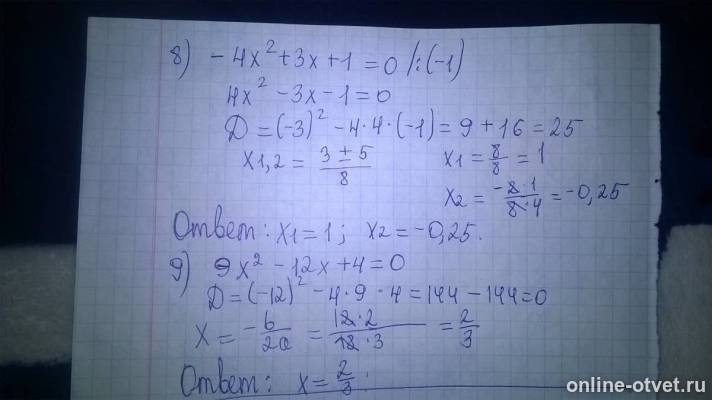 8) -4x² + 3x + 1 = 0 /:(-1)
4x² - 3x - 1 = 0
D = (-3)² - 4·4·(-1) = 9 + 16 = 25
x1,2 = (3 ± 5)/8
x1 = 8/8 = 1
x2 = -2·1/8·4 = -0,25
Ответ: x1 = 1; x2 = -0,25.
9) 9x² - 12x + 4 = 0
D = (-12)² - 4·9·4 = 144 - 144 = 0
x = -b/2a = 12·2/12·3 = 2/3
Ответ: x = 2/3.
online-otvet.ru